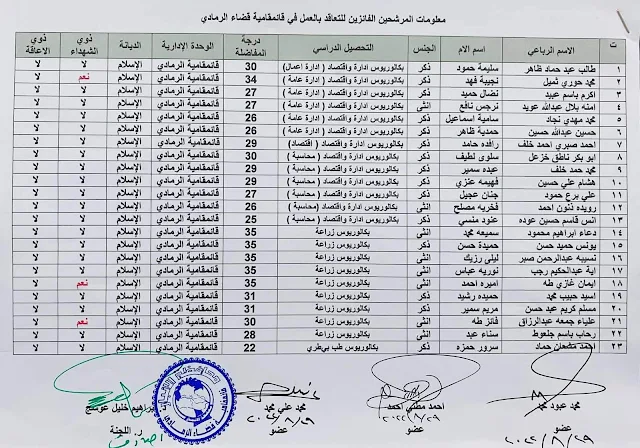 معلومات المرشحين الفائزين للتعاقد بالعمل في قائممقامية قضاء الرمادي
ت الاسم الرباعي اسم الام الجنس التحصيل الدراسي درجة المفاضلة الوحدة الإدارية الديانة ذوي الشهداء ذوي الاعاقة
١ طالب عبد حماد ظاهر سليمة حمود ذكر بكالوريوس ادارة واقتصاد ( ادارة اعمال ) 30 قائممقامية الرمادي الإسلام لا لا
٢ محمد حوري ثميل نجيبة فهد ذكر بكالوريوس ادارة واقتصاد ( ادارة عامة ) 34 قائممقامية الرمادي الإسلام نعم لا
٣ اكرم باسم عبيد نضال حميد ذكر بكالوريوس ادارة واقتصاد ( ادارة عامة ) 27 قائممقامية الرمادي الإسلام لا لا
٤ امنه بلال عبدالله عويد نرجس نافع انثى بكالوريوس ادارة واقتصاد ( ادارة عامة ) 27 قائممقامية الرمادي الإسلام لا لا
٥ محمد مهدي نجاد سامية اسماعيل ذكر بكالوريوس ادارة واقتصاد ( ادارة عامة ) 26 قائممقامية الرمادي الإسلام لا لا
٦ حسين عبدالله حسين حمدية ظاهر ذكر بكالوريوس ادارة واقتصاد ( ادارة عامة ) 26 قائممقامية الرمادي الإسلام لا لا
٧ احمد صبري احمد خلف رافده حامد ذكر بكالوريوس ادارة واقتصاد ( اقتصاد) 29 قائممقامية الرمادي الإسلام لا لا
٨ ابو بكر ناطق خزعل سلوى لطيف ذكر بكالوريوس ادارة واقتصاد ( محاسبة ) 30 قائممقامية الرمادي الإسلام لا لا
٩ محمد حمد خلف عبده سمير ذكر بكالوريوس ادارة واقتصاد ( محاسبة ) 29 قائممقامية الرمادي الإسلام لا لا
١٠ هشام علي حسين فهيمه عنزي ذكر بكالوريوس ادارة واقتصاد ( محاسبة ) 29 قائممقامية الرمادي الإسلام لا لا
١١ علي برع حمود جنان عجيل ذكر بكالوريوس ادارة واقتصاد ( محاسبة ) 27 قائممقامية الرمادي الإسلام لا لا
١٢ رويده ذنون احمد فخريه مصلح انثى بكالوريوس ادارة واقتصاد (محاسبة ) 26 قائممقامية الرمادي الإسلام لا لا
١٣ انس قاسم حسين عوده عنود منسي ذكر بكالوريوس ادارة واقتصاد ( محاسبة ) 25 قائممقامية الرمادي الإسلام لا لا
١٤ دعاء ابراهيم محمود سميعه محمد انثى بكالوريوس زراعة 35 قائممقامية الرمادي الإسلام لا لا
١٥ يونس حميد حسن حميدة حسن ذكر بكالوريوس زراعة 35 قائممقامية الرمادي الإسلام لا لا
١٦ نسيبه عبدالرحمن صبر ليلى رزيك انثى بكالوريوس زراعة 35 قائممقامية الرمادي الإسلام لا لا
١٧ اية عبدالحكيم رجب نوريه عباس انثى بكالوريوس زراعة 35 قائممقامية الرمادي الإسلام لا لا
١٨ ايمان غازي طه اميره احمد انثى بكالوريوس زراعة 35 قائممقامية الرمادي الإسلام نعم لا
١٩ اسيد حبيب محمد حميده رشيد ذكر بكالوريوس زراعة 31 قائممقامية الرمادي الإسلام لا لا
٢٠ مسلم كريم عبد حسن مريم سمير ذكر بكالوريوس زراعة 31 قائممقامية الرمادي الإسلام لا لا
٢١ علياء جمعه عبدالرزاق فائز طه انثى بكالوريوس زراعة 30 قائممقامية الرمادي الإسلام نعم لا
٢٢ رحاب باسم جلعوط سناء عبد انثى بكالوريوس زراعة 28 قائممقامية الرمادي الإسلام لا لا
٢٣ احمد مشعان حماد سرور حمزه ذكر بكالوريوس طب بيطري 22 قائممقامية الرمادي الإسلام لا لا
محمد عبود محمد احمد مضحي احمد محمد علي محمد ابراهيم خليل عوسج
عضو عضو عضو ر. اللجنة